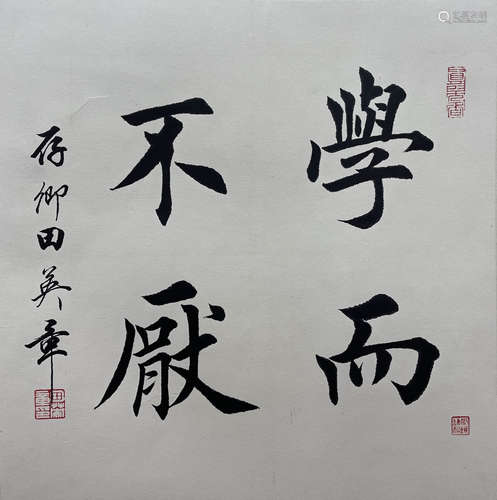 學而
不厭
存卿田英章